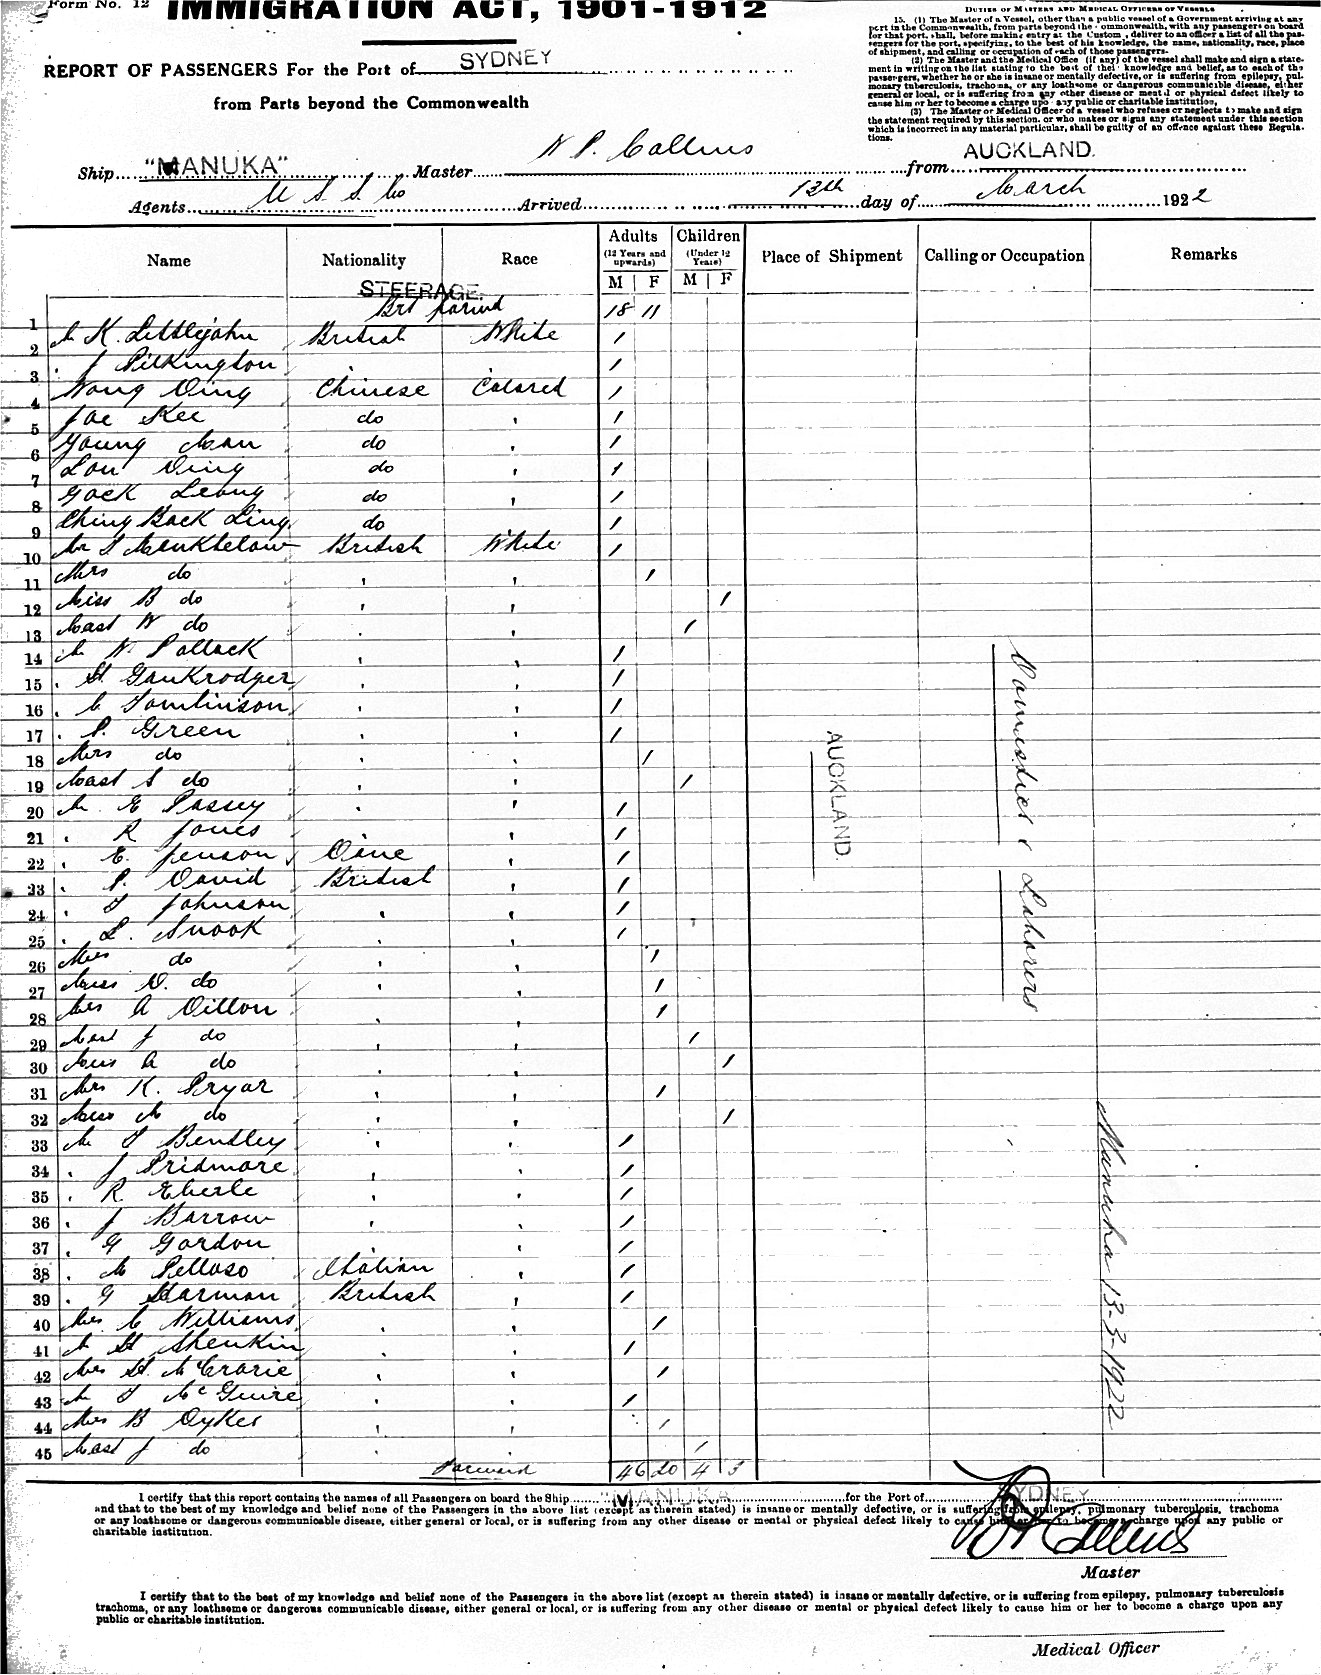 Form No. 12
IMMIGRATION ACT, 1901-1912
REPORT OF PASSENGERS For the Port of SYDNEY
from Parts beyond the Commonwealth
DUTIES OF MASTERS AND MEDICAL OFFICERS OF VESSELS
15. (1) The Master of a Vessel, other than a public vessel of a Government arriving at any
port in the Commonwealth, from parts beyond the Commonwealth, with any passengers on board
for that port, shall, before making entry at the Custom, deliver to an officer a list of all the pas-
sengers for the port, specifying, to the best of his knowledge, the name, nationality, race, place
of shipment, and calling or occupation of each of those passengers.
(2) The Master and the Medical Office (if any) of the vessel shall make and sign a state-
ment in writing on the list stating to the best of their knowledge and belief, as to each of the
passengers, whether he or she is insane or mentally defective, or is suffering from epilepsy, pul-
monary tuberculosis, trachoma, or any loathsome or dangerous communicable disease, either
general or local, or is suffering from any other disease or mental or physical defect likely to
cause him or her to become a charge upon any public or charitable institution,
(3) The Master or Medical Officer of a vessel who refuses or neglects to make and sign
the statement required by this section, or who makes or signs any statement under this section
which is incorrect in any material particular, shall be guilty of an offence against these Regula-
tions.
Ship "MANUKA" Master W P. Collins from AUCKLAND.
Agents U S S Co Arrived 13th day of March 1922
Name Nationality Race Adults (12 Years and upwards) M F Children (Under 12 Years) M F Place of Shipment Calling or Occupation Remarks
STEERAGE.
Brt forwd 18 11
1 Mr K. Littlejohn British White 1
2 " J Pilkington " " 1
3 Wong Ving Chinese Colored 1
4 Joe Kee do " 1
5 Young Man do " 1
6 Lou Ving do " 1
7 Gock Leong do " 1
8 Ching Back Ling do " 1
9 Mr British White 1
10 Mrs do " " 1
11 Miss B do " " 1
12 Mast W do " " 1
13 Mr W. Pollack " " 1
14 " H. Gaukrodger " " 1
15 " C Tomlinson " " 1
16 " P. Green " " 1
17 Mrs do " " 1
18 Mast S do " " 1
19 Mr E Passey " " 1
20 " R Jones " " 1
21 " E. Jenson Dane " 1
22 " P. David British " 1
23 " T Johnson " " 1
24 " L. Snook " " 1
25 Mrs do " " 1
26 Miss D. do " " 1
27 Mrs A Dillon " " 1
28 Mast J do " " 1
29 Miss A do " " 1
30 Mrs K. Pryor " " 1
31 Miss M do " " 1
32 Mr T Bendley " " 1
33 " J Pridmore " " 1
34 " R. Eberle " " 1
35 " J Barrow " " 1
36 " G Gordon " " 1
37 " M Pelloso Italian " 1
38 " G Harmon British " 1
39 Mrs C Williams " " 1
40 Mr H Shenkin " " 1
41 Mrs H. McCrorie " " 1
42 Mr T McGuire " " 1
43 Mrs B Dykes " " 1
44 Mast J do " " 1
45
Forward 46 20 4 3
AUCKLAND.
Domestics & Laborers
Manuka 13-3-1922
I certify that this report contains the names of all Passengers on board the Ship "MANUKA for the Port of SYDNEY
and that to the best of my knowledge and belief none of the Passengers in the above list (except as therein stated) is insane or mentally defective, or is suffering from epilepsy, pulmonary tuberculosis, trachoma
or any loathsome or dangerous communicable disease, either general or local, or is suffering from any other disease or mental or physical defect likely to cause him or her to become a charge upon any public or
charitable institution.
W P Collins
Master
I certify that to the best of my knowledge and belief none of the Passengers in the above list (except as therein stated) is insane or mentally defective, or is suffering from epilepsy, pulmonary tuberculosis
trachoma, or any loathsome or dangerous communicable disease, either general or local, or is suffering from any other disease or mental or physical defect likely to cause him or her to become a charge upon any
public or charitable institution.
Medical Officer